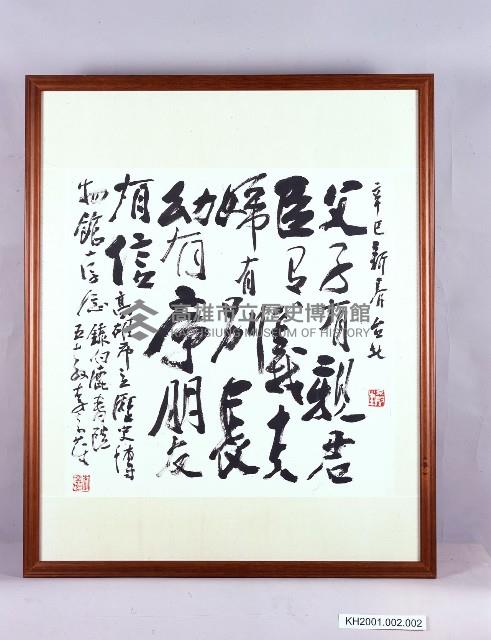 辛巳新春台北
父子有親君
臣有義夫
婦有別長
幼有序朋友
有信高雄市立歷史博
物館存念錄白鹿書院
五
高雄市立歷史博物館
KAOHSIUNG MUSEUM OF HISTORY
KH2001.002.002